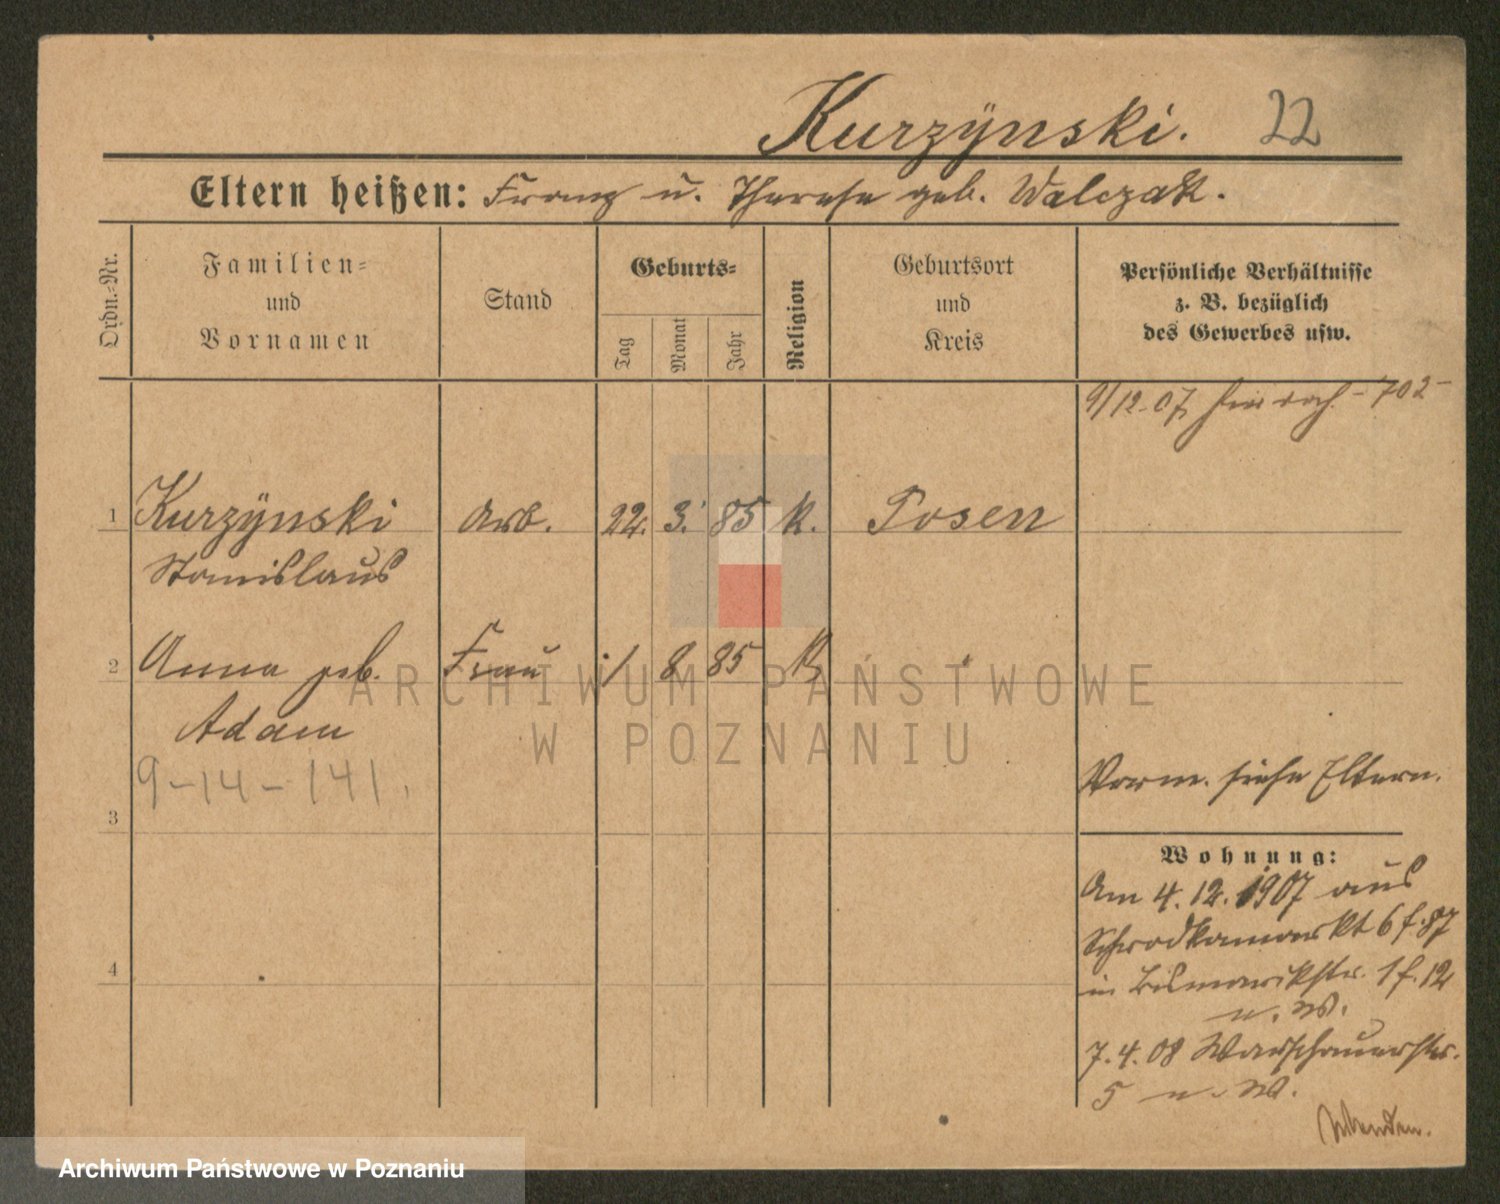 Kurzÿnski. 22
Eltern heißen: Franz u. Therese geb. Walczak.
Ordn.-Nr.
Familien-
und
Vornamen
Stand
Geburts-
Tag
Monat
Jahr
Religion
Geburtsort
und
Kreis
Persönliche Verhältnisse
z. B. bezüglich
des Gewerbes usw.
9/12-07 -702-
1 Kurzÿnski Arb. 22. 3. 85 k. Posen
Stanislaus
2 Anna geb. Frau 1 8 85 k
Adam
9-14-141.
3
Verm. siehe Eltern.
Wohnung:
Am 4.12.1907 aus
Schrodkamarkt 6 f. 87
in Bismarckstr. 1 f. 12
n. W.
7.4.08 Warschauerstr.
5 n. W.
4
ARCHIWUM PAŃSTWOWE
W POZNANIU
Archiwum Państwowe w Poznaniu